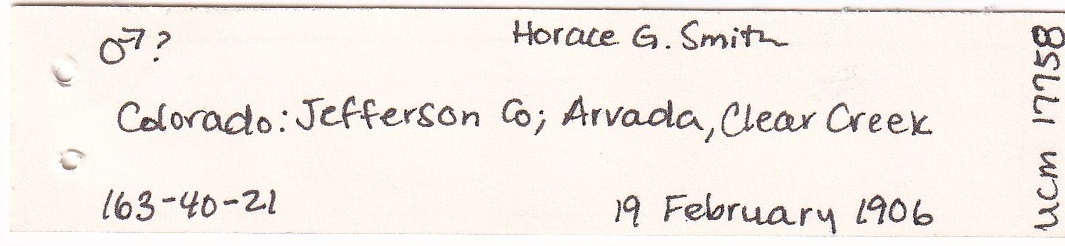 ♂? Horace G. Smith
Colorado: Jefferson Co; Arvada, Clear Creek
163-40-21 19 February 1906
UCM 17758